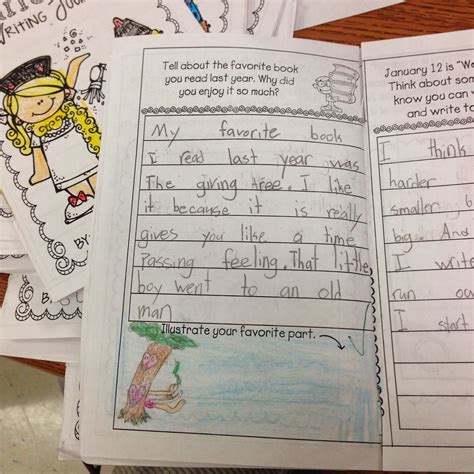 WRITING JOU
BY:
Tell about the favorite book
you read last year. Why did
you enjoy it so much?
My favorite book
I read last year was
The giving tree. I like
it because it is really
gives you like a time
Passing feeling. That little
boy went to an old
man
Illustrate your favorite part.
January 12 is "We
Think about som
know you can w
and write to
I think
harder
smaller b
big. And
I write
run ou
I start